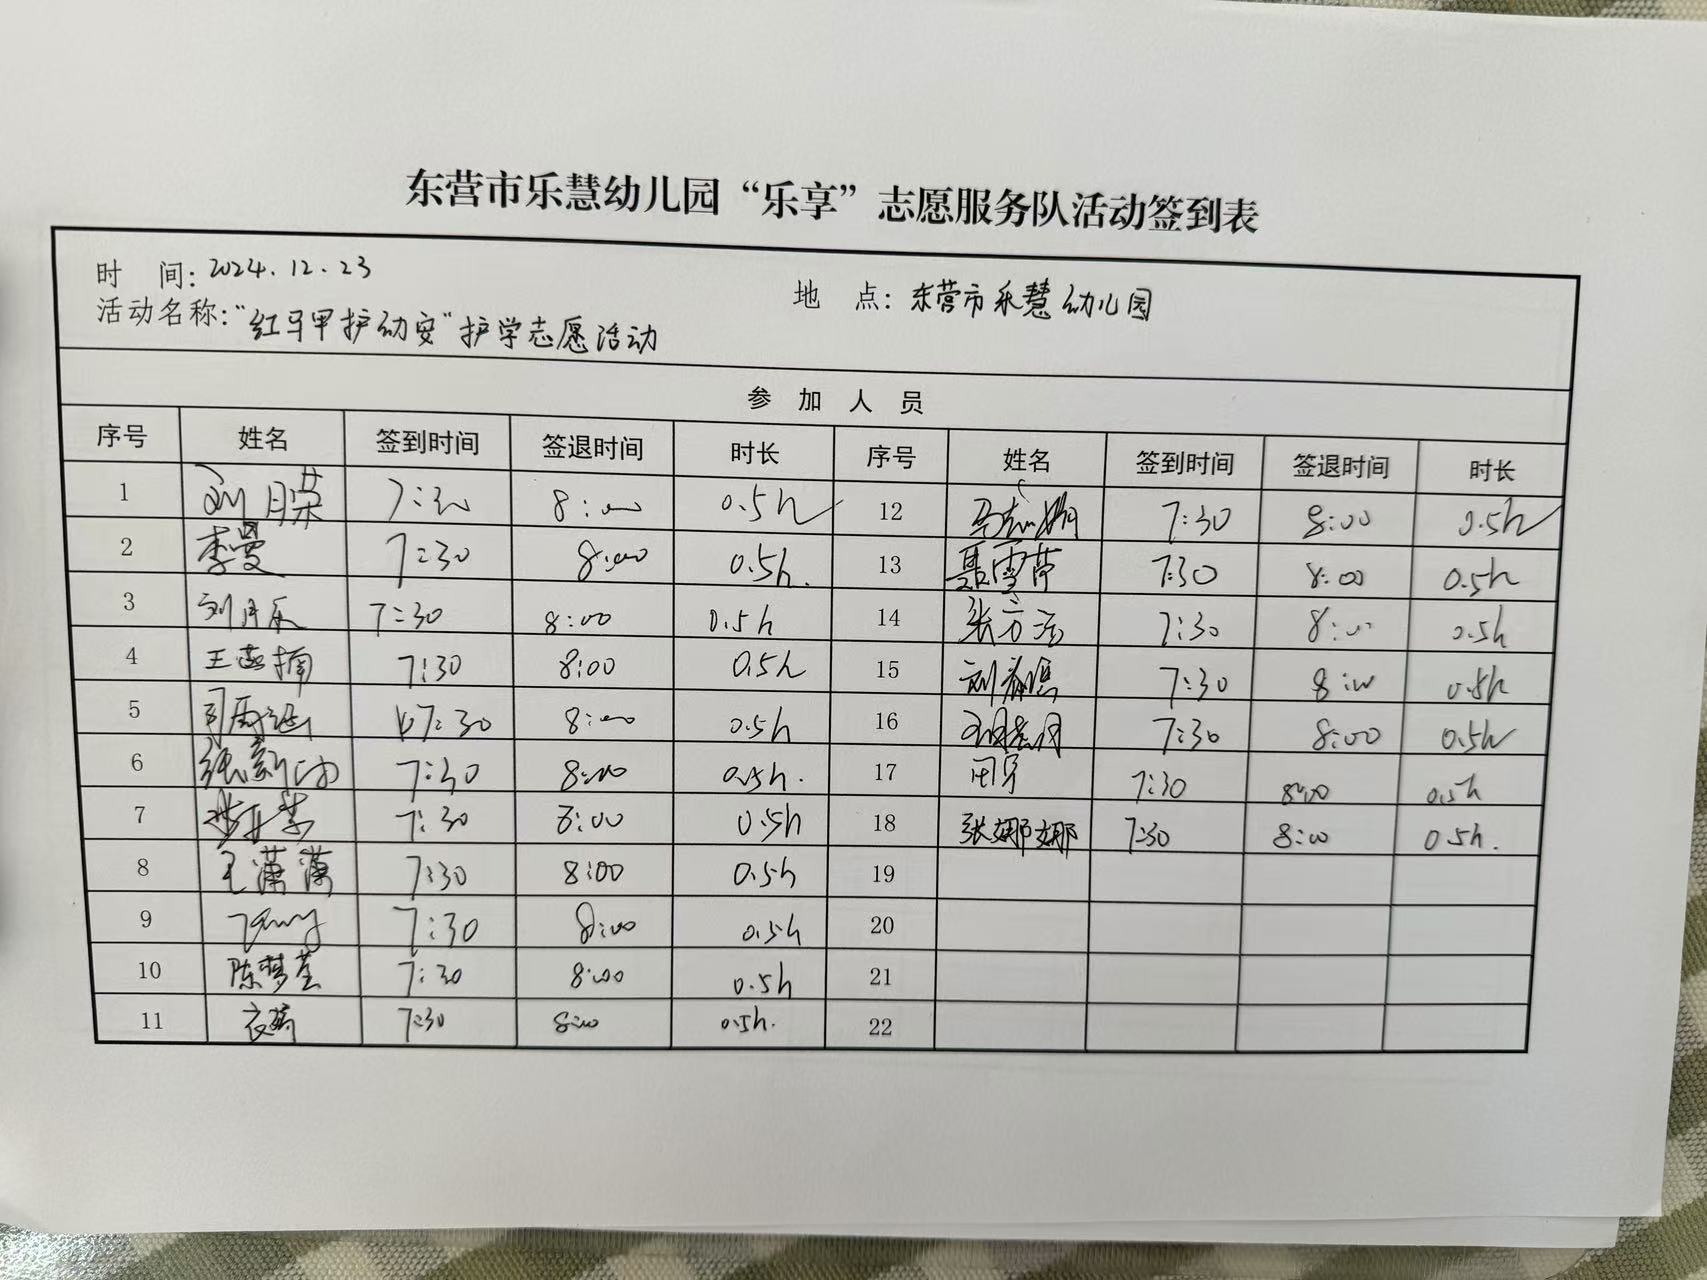 东营市乐慧幼儿园“乐享”志愿服务队活动签到表
时 间：2024.12.23 地 点：东营市乐慧幼儿园
活动名称：“红马甲护幼安”护学志愿活动
参 加 人 员
序号 姓名 签到时间 签退时间 时长 序号 姓名 签到时间 签退时间 时长
1 刘月荣 7:30 8:00 0.5h 12 7:30 8:00 0.5h
2 李曼 7:30 8:00 0.5h. 13 聂雪芹 7:30 8:00 0.5h
3 刘月乐 7:30 8:00 0.5h 14 7:30 8:00 0.5h
4 王燕楠 7:30 8:00 0.5h 15 7:30 8:00 0.5h
5 7:30 8:00 0.5h 16 7:30 8:00 0.5h
6 7:30 8:00 0.5h. 17 7:30 8:00 0.5h
7 7:30 8:00 0.5h 18 张娜娜 7:30 8:00 0.5h.
8 王潇潇 7:30 8:00 0.5h 19
9 7:30 8:00 0.5h 20
10 陈梦荟 7:30 8:00 0.5h 21
11 7:30 8:00 0.5h. 22